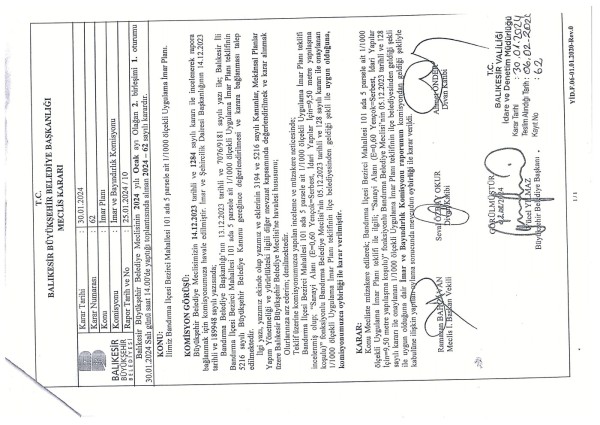 T.C.
BALIKESİR BÜYÜKŞEHİR BELEDİYE BAŞKANLIĞI
MECLİS KARARI
BALIKESİR
BÜYÜKŞEHİR
BELEDİYESİ
Karar Tarihi : 30.01.2024
Karar Numarası : 62
Konu : İmar Planı
Komisyonu : İmar ve Bayındırlık Komisyonu
Rapor Tarih ve No : 25.01.2024 / 10
Balıkesir Büyükşehir Belediye Meclisinin 2024 yılı Ocak ayı Olağan 2. birleşimi 1. oturumu
30.01.2024 Salı günü saat 14.00'de yaptığı toplantısında alınan 2024 – 62 sayılı karardır.
KONU:
İlimiz Bandırma İlçesi Bezirci Mahallesi 101 ada 5 parsele ait 1/1000 ölçekli Uygulama İmar Planı.
KOMİSYON GÖRÜŞÜ:
Büyükşehir Belediye Meclisimizin 14.12.2023 tarihli ve 1284 sayılı kararı ile incelenerek rapora
bağlanmak için komisyonumuza havale edilmiştir. İmar ve Şehircilik Dairesi Başkanlığının 14.12.2023
tarihli ve 189948 sayılı yazısında;
Bandırma Belediye Başkanlığı'nın 13.12.2023 tarihli ve 7076/9181 sayılı yazı ile; Balıkesir İli
Bandırma İlçesi Bezirci Mahallesi 101 ada 5 parsele ait 1/1000 ölçekli Uygulama İmar Planı teklifinin
5216 sayılı Büyükşehir Belediye Kanunu gereğince değerlendirilmesi ve karara bağlanması talep
edilmektedir.
İlgi yazı, yazımız ekinde olup yazımız ve eklerinin 3194 ve 5216 sayılı Kanunlar, Mekânsal Planlar
Yapım Yönetmeliği ve yürürlükteki ilgili diğer mevzuat kapsamında değerlendirilmek ve karar alınmak
üzere Balıkesir Büyükşehir Belediye Meclisi'ne havalesi hususunu;
Olurlarınıza arz ederim; denilmektedir.
Teklif üzerine komisyonumuzca yapılan inceleme ve müzakere neticesinde;
Bandırma İlçesi Bezirci Mahallesi 101 ada 5 parsele ait 1/1000 ölçekli Uygulama İmar Planı teklifi
incelenmiş olup; "Sanayi Alanı (E=0,60 Yençok=Serbest, İdari Yapılar İçin=9,50 metre yapılaşma
koşulu)" fonksiyonlu Bandırma Belediye Meclisi'nin 05.12.2023 tarihli ve 128 sayılı kararı ile onaylanan
1/1000 ölçekli Uygulama İmar Planı teklifinin ilçe belediyesinden geldiği şekli ile uygun olduğuna,
komisyonumuzca oybirliği ile karar verilmiştir.
KARAR:
Konu Mecliste müzakere edilerek; Bandırma İlçesi Bezirci Mahallesi 101 ada 5 parsele ait 1/1000
ölçekli Uygulama İmar Planı teklifi ile ilgili; "Sanayi Alanı (E=0,60 Yençok=Serbest, İdari Yapılar
İçin=9,50 metre yapılaşma koşulu)" fonksiyonlu Bandırma Belediye Meclisi'nin 05.12.2023 tarihli ve 128
sayılı kararı ile onaylanan 1/1000 ölçekli Uygulama İmar Planı teklifinin ilçe belediyesinden geldiği şekli
ile uygun olduğuna dair İmar ve Bayındırlık Komisyonu raporunun komisyondan geldiği şekliyle
kabulüne ilişkin yapılan oylama sonucunda mevcudun oybirliği ile karar verildi.
Meclis 1. Başkan Vekili
Seval ÖZBEY OKUR
Divan Katibi
Ahmet ÖNDER
Divan Katibi
GÖRÜLMÜŞTÜR
Yücel YILMAZ
Büyükşehir Belediye Başkanı
T.C.
BALIKESİR VALİLİĞİ
İdare ve Denetim Müdürlüğü
Karar Tarihi : 30.01.2024
Teslim Alındığı Tarih : 06.02.2024
Kayıt No : 62
1/1